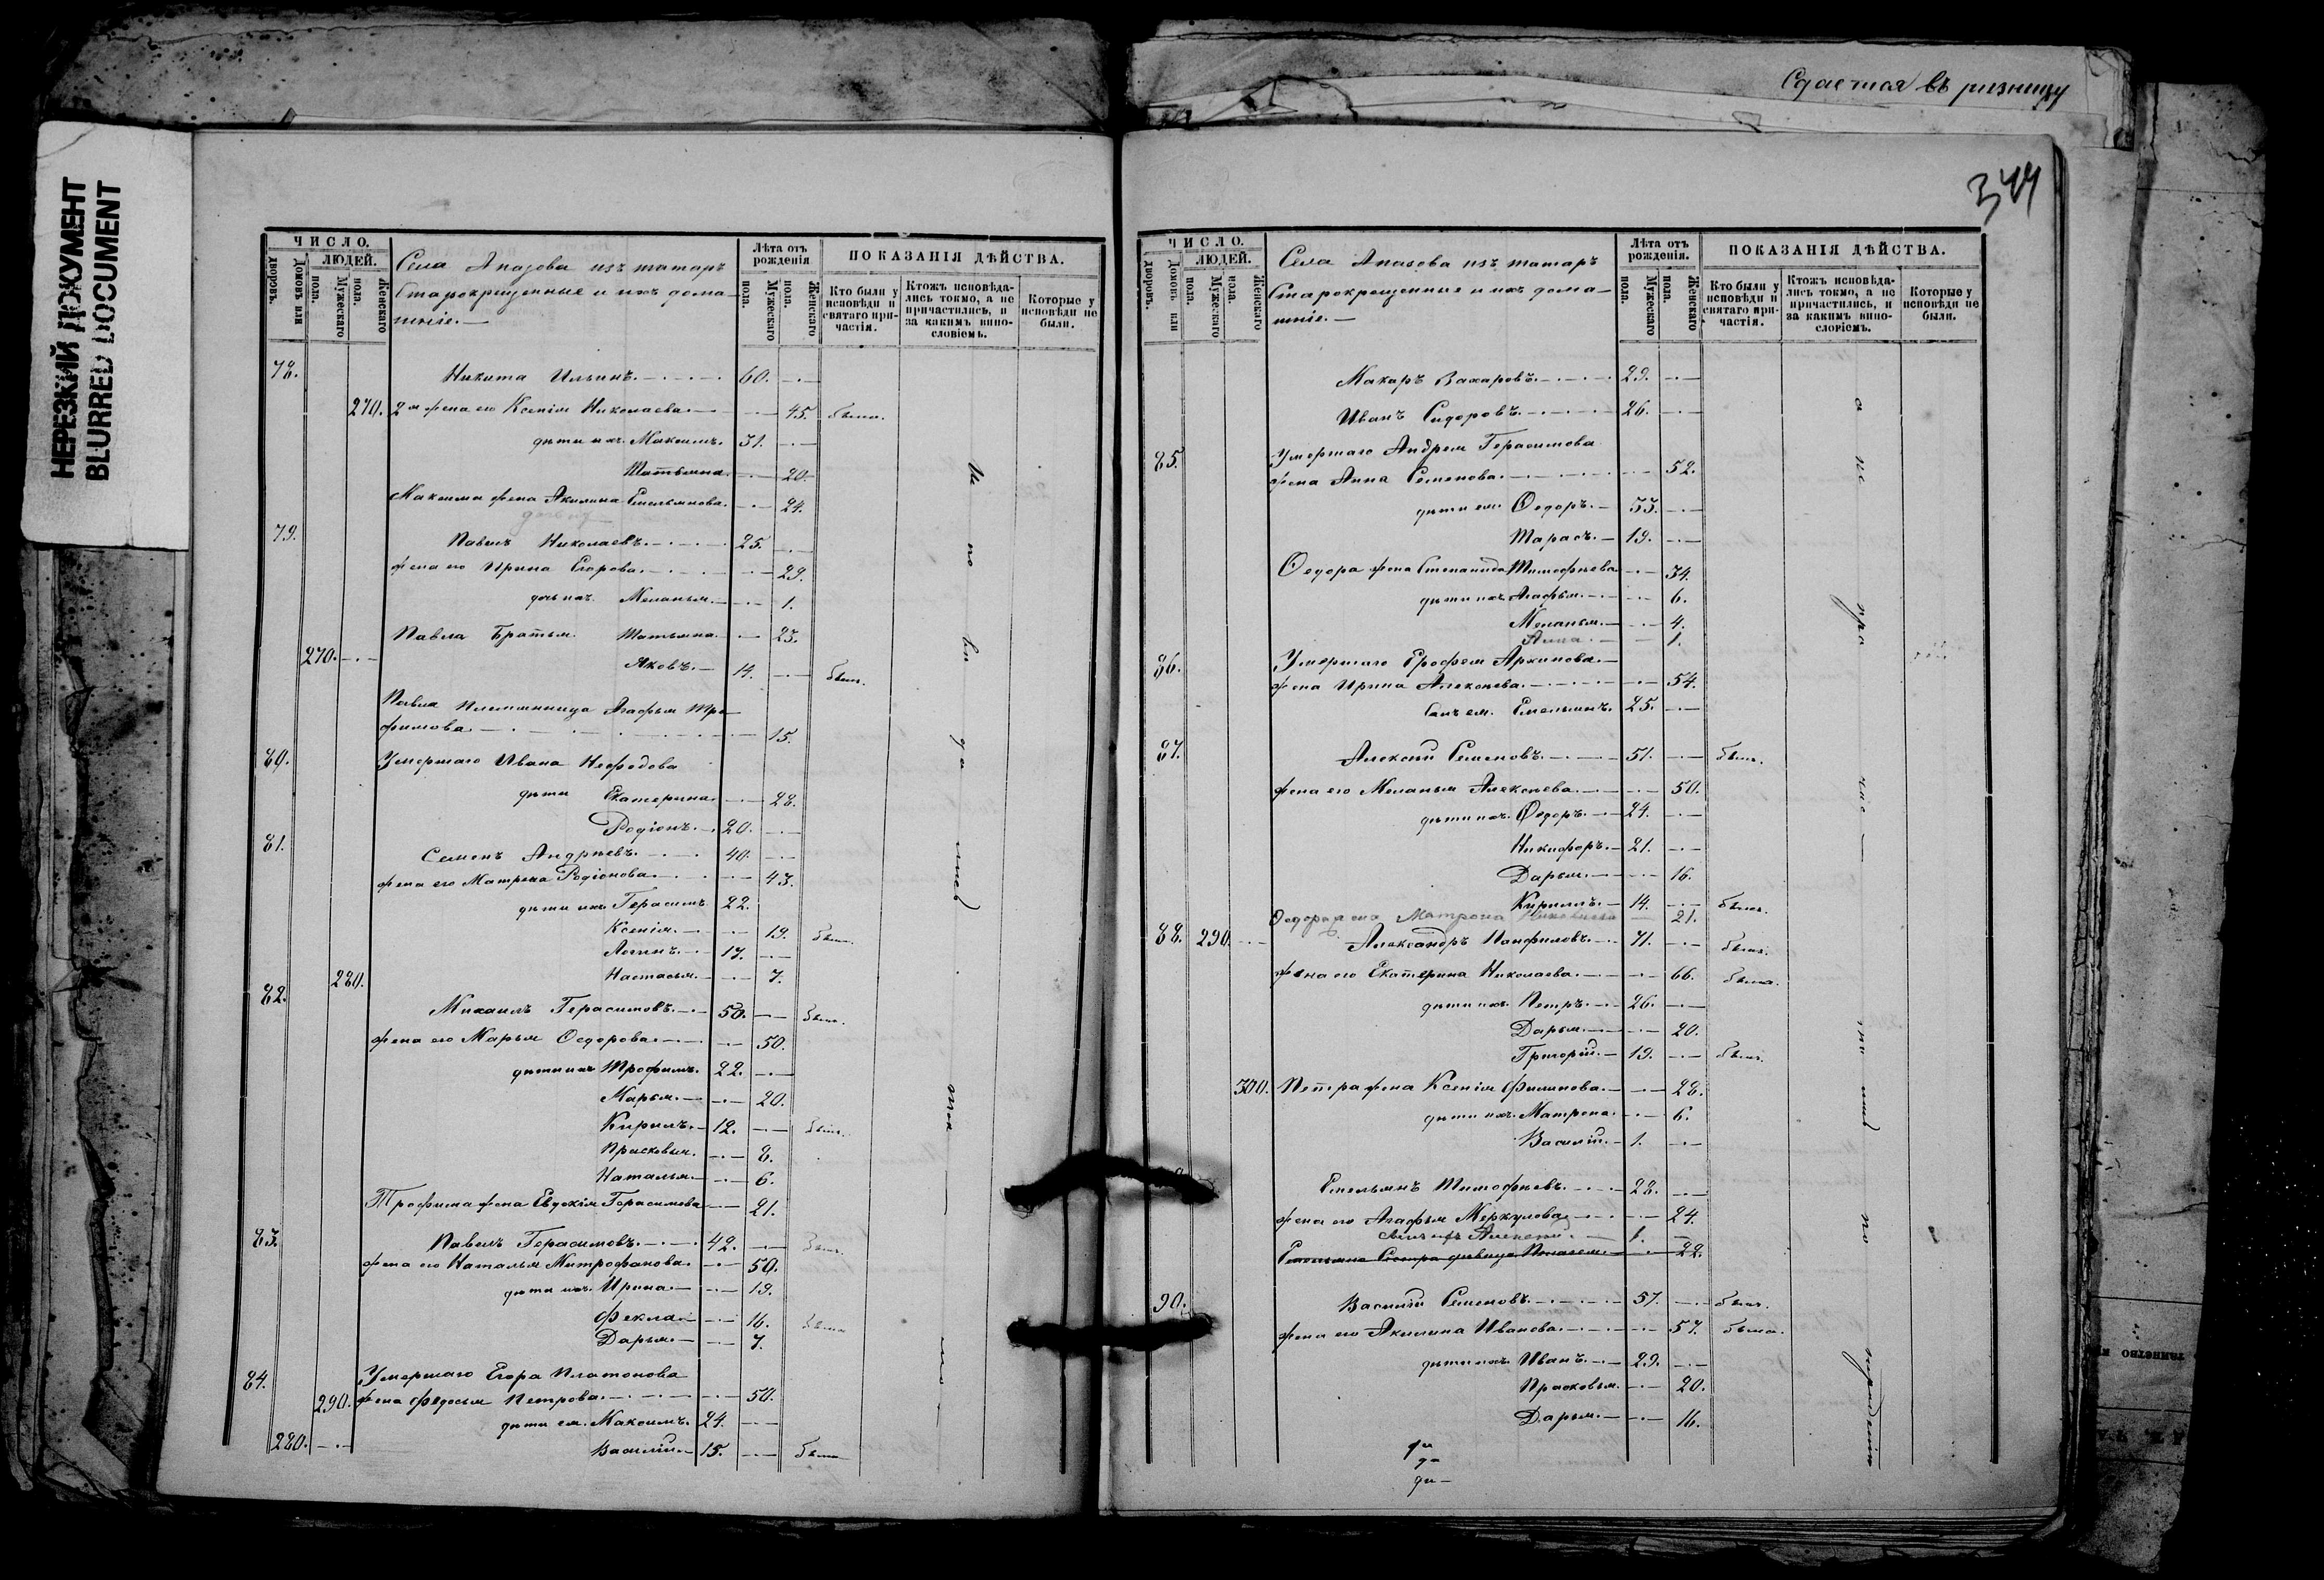 НЕРЕЗКИЙ ДОКУМЕНТ
BLURRED DOCUMENT
ЧИСЛО.
ЛЮДЕЙ.
Дворовъ.
Домовъ или
Мужескаго пола.
Женскаго пола.
Села Апазова изъ татаръ
Старокрещенные и ихъ дома-
шніе.—
Лѣта отъ рожденія
Мужескаго пола.
Женскаго пола.
ПОКАЗАНІЯ ДѢЙСТВА.
Кто были у исповѣди и святаго при-частія.
Ктожъ исповѣда-лись токмо, а не причастились, и за какимъ вино-словіемъ.
Которые у исповѣди не были.
78. Никита Ильинъ. 60.
270. 2я жена его Ксенія Николаева. 45. была.
дѣти ихъ Максимъ. 31.
Татьяна. 20.
Максима жена Акилина Емельянова. 24.
79. Павелъ Николаевъ. 25.
жена его Ирина Егорова. 29.
дочь ихъ Меланья. 1.
Павла Братья. Татьяна. 23.
270. Яковъ. 14. былъ.
Павла племянница Агафья Тро-
фимова. 15.
80. Умершаго Ивана Нефедова
дѣти Екатерина. 28.
Родіонъ. 20.
81. Семенъ Андрѣевъ. 40.
жена его Матрена Родіонова. 43.
дѣти ихъ Герасимъ 22.
Ксенія. 19. была.
Логинъ. 17.
280. Настасья. 7.
82. Михаилъ Герасимовъ. 50. былъ.
жена его Марья Ѳедорова. 50.
дѣти ихъ Трофимъ. 22.
Марья. 20.
Кирилъ. 12. былъ.
Прасковья. 8.
Наталья. 6.
Трофима жена Евдокія Герасимова 21.
83. Павелъ Герасимовъ. 42. былъ.
жена его Наталья Митрофанова. 50.
дѣти ихъ Ирина. 19.
Фекла. 16. была
Дарья. 7.
84. Умершаго Егора Платонова
290. жена Федосья Петрова. 50.
дѣти ея. Максимъ. 24.
280. Василій. 15. былъ
Сдается въ ризницу
344
ЧИСЛО.
ЛЮДЕЙ.
Дворовъ.
Домовъ или
Мужескаго пола.
Женскаго пола.
Села Апазова изъ татаръ
Старокрещенные и ихъ дома-
шніе.—
Лѣта отъ рожденія.
Мужескаго пола.
Женскаго пола.
ПОКАЗАНІЯ ДѢЙСТВА.
Кто были у исповѣди и святаго при-частія.
Ктожъ исповѣда-лись токмо, а не причастились, и за какимъ вино-словіемъ.
Которые у исповѣди не были.
Макаръ Захаровъ. 29.
Иванъ Сидоровъ. 26.
85. Умершаго Андрея Герасимова
жена Анна Семенова. 52.
дѣти ея. Ѳедоръ. 33.
Тарасъ. 19.
Ѳедора жена Степанида Тимофѣева 34.
дѣти ихъ Агафья. 6.
Меланья. 4.
Анна. 1.
86. Умершаго Ерофея Архипова
жена Ирина Алексѣева. 54.
сынъ ея. Емельянъ. 25.
87. Алексѣй Семеновъ. 51. былъ.
жена его Меланья Алексѣева. 50.
дѣти ихъ. Ѳедоръ. 24.
Никифоръ. 21.
Дарья. 16.
Кириллъ. 14. былъ.
Ѳедора жена Матрона 21.
88. 290. Александръ Панфиловъ. 71. былъ.
жена его Екатерина Николаева. 66. была.
дѣти ихъ. Петръ. 26.
Дарья. 20.
Григорій. 19. былъ.
300. Петра жена Ксенія Филипова. 28.
дѣти ихъ. Матрена. 6.
Василій. 1.
Емельянъ Тимофѣевъ. 28.
жена его Агафья Меркулова 24.
сынъ ихъ Алексѣй. 1.
Емельяна Сестра дѣвица Пелагея. 22.
90. Василій Семеновъ. 57. былъ.
жена его Акилина Иванова. 57. была.
дѣти ихъ. Иванъ. 29.
Прасковья. 20.
Дарья. 16.